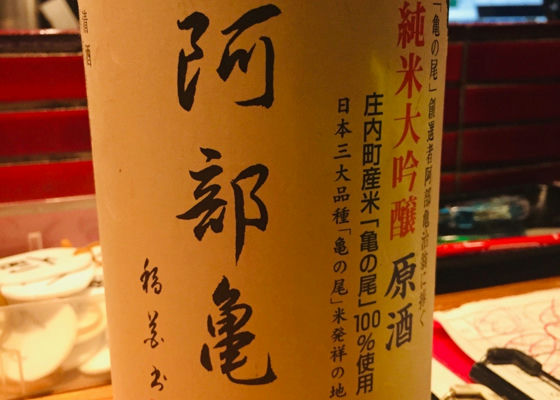 「亀の尾」創選者阿部亀治翁に捧ぐ
純米大吟醸 原酒
庄内町産米「亀の尾」100%使用
日本三大品種「亀の尾」米発祥の地
阿部亀
清酒